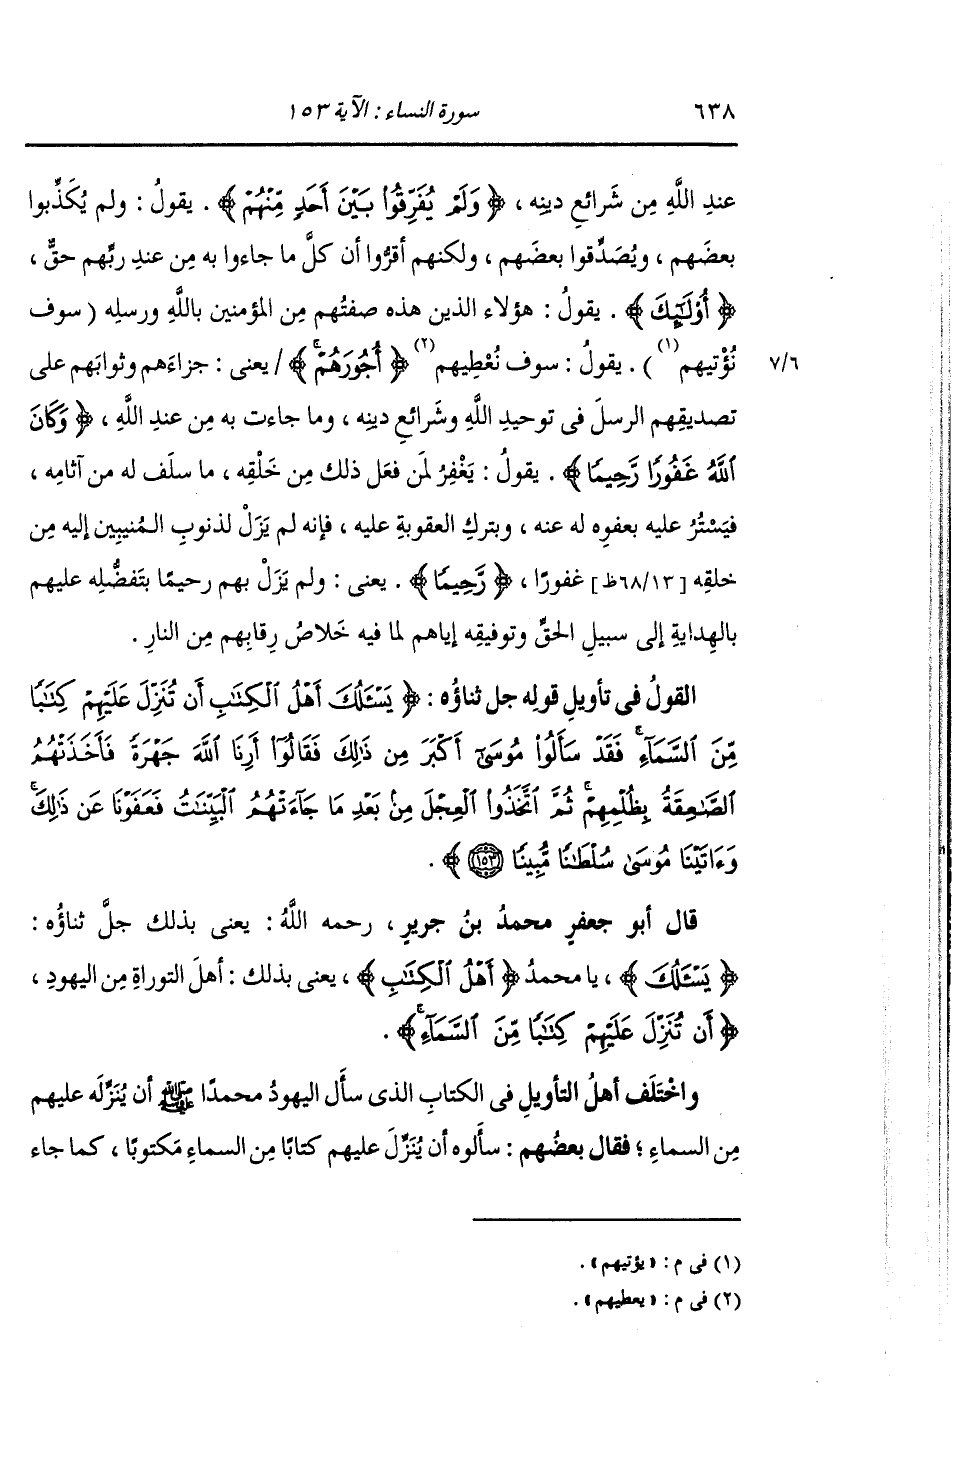 ٦٣٨ سورة النساء : الآية ١٥٣
عندِ اللَّهِ مِن شَرائعِ دينِه ، ﴿ وَلَمْ يُفَرِّقُوا۟ بَيْنَ أَحَدٍ مِّنْهُمْ ﴾ . يقولُ : ولم يُكَذِّبوا
بعضَهم ، ويُصَدِّقوا بعضَهم ، ولكنهم أقرُّوا أن كلَّ ما جاءوا به مِن عندِ ربِّهم حقٌّ ،
﴿ أُو۟لَـٰٓئِكَ ﴾ . يقولُ : هؤلاء الذين هذه صفتُهم مِن المؤمنين باللَّهِ ورسلِه ( سوف
نُؤْتيهم (١) ) . يقولُ : سوف نُعْطِيهم (٢) ﴿ أُجُورَهُمْ ۚ ﴾ / يعنى : جزاءَهم وثوابَهم على
٧/٦
تصديقِهم الرسلَ فى توحيدِ اللَّهِ وشرائعِ دينِه ، وما جاءت به مِن عندِ اللَّهِ ، ﴿ وَكَانَ
ٱللَّهُ غَفُورًا رَّحِيمًا ﴾ . يقولُ : يَغْفِرُ لمَن فعَل ذلك مِن خَلْقِه ، ما سلَف له من آثامِه ،
فيَسْتُرُ عليه بعفوِه له عنه ، وبتركِ العقوبةِ عليه ، فإنه لم يَزَلْ لذنوبِ المُنيبين إليه مِن
خلقِه [ ٦٨/١٣ظ ] غفورًا ، ﴿ رَّحِيمًا ﴾ . يعنى : ولم يَزَلْ بهم رحيمًا بتَفضُّلِه عليهم
بالهِدايةِ إلى سبيلِ الحقِّ وتوفيقِه إياهم لما فيه خَلاصُ رِقابِهم مِن النارِ .
القولُ فى تأويلِ قولِه جل ثناؤُه : ﴿ يَسْـَٔلُكَ أَهْلُ ٱلْكِتَـٰبِ أَن تُنَزِّلَ عَلَيْهِمْ كِتَـٰبًا
مِّنَ ٱلسَّمَآءِ ۚ فَقَدْ سَأَلُوا۟ مُوسَىٰٓ أَكْبَرَ مِن ذَٰلِكَ فَقَالُوٓا۟ أَرِنَا ٱللَّهَ جَهْرَةً فَأَخَذَتْهُمُ
ٱلصَّـٰعِقَةُ بِظُلْمِهِمْ ۚ ثُمَّ ٱتَّخَذُوا۟ ٱلْعِجْلَ مِنۢ بَعْدِ مَا جَآءَتْهُمُ ٱلْبَيِّنَـٰتُ فَعَفَوْنَا عَن ذَٰلِكَ ۚ
وَءَاتَيْنَا مُوسَىٰ سُلْطَـٰنًا مُّبِينًا ١٥٣ ﴾ .
قال أبو جعفرٍ محمدُ بنُ جريرٍ ، رحمه اللَّهُ : يعنى بذلك جلَّ ثناؤُه :
﴿ يَسْـَٔلُكَ ﴾ ، يا محمدُ ﴿ أَهْلُ ٱلْكِتَـٰبِ ﴾ ، يعنى بذلك : أهلَ التوراةِ مِن اليهودِ ،
﴿ أَن تُنَزِّلَ عَلَيْهِمْ كِتَـٰبًا مِّنَ ٱلسَّمَآءِ ۚ ﴾ .
واخْتَلَف أهلُ التأويلِ فى الكتابِ الذى سأل اليهودُ محمدًا ﷺ أن يُنَزِّلَه عليهم
مِن السماءِ ؛ فقال بعضُهم : سألوه أن يُنَزِّلَ عليهم كتابًا مِن السماءِ مَكتوبًا ، كما جاء
(١) فى م : « يؤتيهم » .
(٢) فى م : « يعطيهم » .